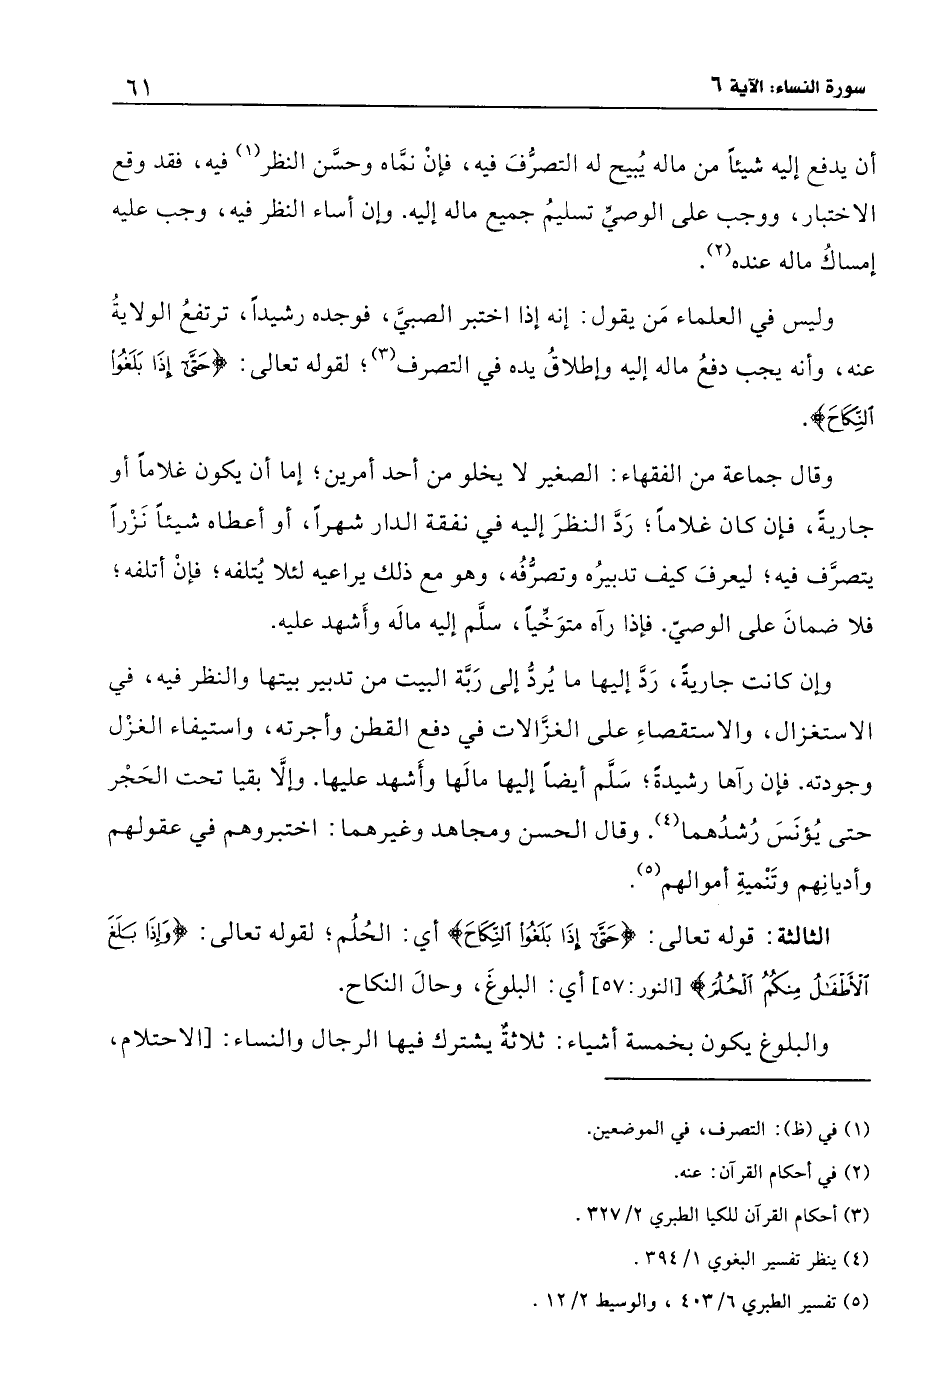 سورة النساء: الآية ٦
٦١
أن يدفع إليه شيئاً من ماله يُبيح له التصرُّفَ فيه، فإنْ نمَّاه وحسَّن النظر(١) فيه، فقد وقع
الاختبار، ووجب على الوصيِّ تسليمُ جميع ماله إليه. وإن أساء النظر فيه، وجب عليه
إمساكُ ماله عنده(٢).
وليس في العلماء مَن يقول: إنه إذا اختبر الصبيَّ، فوجده رشيداً، ترتفعُ الولايةُ
عنه، وأنه يجب دفعُ ماله إليه وإطلاقُ يده في التصرف(٣)؛ لقوله تعالى: ﴿حَتَّىٰٓ إِذَا بَلَغُوا۟
ٱلنِّكَاحَ﴾.
وقال جماعة من الفقهاء: الصغير لا يخلو من أحد أمرين؛ إما أن يكون غلاماً أو
جاريةً، فإن كان غلاماً؛ رَدَّ النظرَ إليه في نفقة الدار شهراً، أو أعطاه شيئاً نَزْراً
يتصرَّف فيه؛ ليعرفَ كيف تدبيرُه وتصرُّفُه، وهو مع ذلك يراعيه لئلا يُتلفه؛ فإنْ أتلفه؛
فلا ضمانَ على الوصيّ. فإذا رآه متوَخِّياً، سلَّم إليه مالَه وأَشهد عليه.
وإن كانت جاريةً، رَدَّ إليها ما يُردُّ إلى رَبَّة البيت من تدبير بيتها والنظر فيه، في
الاستغزال، والاستقصاءِ على الغزَّالات في دفع القطن وأجرته، واستيفاء الغزْل
وجودته. فإن رآها رشيدةً؛ سَلَّم أيضاً إليها مالَها وأَشهد عليها. وإلَّا بقيا تحت الحَجْر
حتى يُؤنَسَ رُشدُهما(٤). وقال الحسن ومجاهد وغيرهما: اختبروهم في عقولهم
وأديانِهم وتَنْميةِ أموالهم(٥).
الثالثة: قوله تعالى: ﴿حَتَّىٰٓ إِذَا بَلَغُوا۟ ٱلنِّكَاحَ﴾ أي: الحُلُم؛ لقوله تعالى: ﴿وَإِذَا بَلَغَ
ٱلْأَطْفَٰلُ مِنكُمُ ٱلْحُلُمَ﴾ [النور:٥٧] أي: البلوغَ، وحالَ النكاح.
والبلوغ يكون بخمسة أشياء: ثلاثةٌ يشترك فيها الرجال والنساء: [الاحتلام،
(١) في (ظ): التصرف، في الموضعين.
(٢) في أحكام القرآن: عنه.
(٣) أحكام القرآن للكيا الطبري ٢/ ٣٢٧ .
(٤) ينظر تفسير البغوي ١/ ٣٩٤ .
(٥) تفسير الطبري ٦/ ٤٠٣ ، والوسيط ٢/ ١٢ .